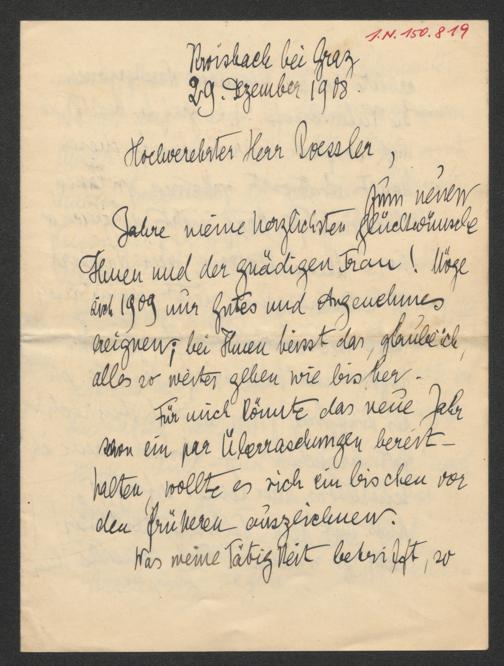 I.N. 150.819
Kroisbach bei Graz
29. Dezember 1908
Hochverehrter Herr Roessler,
zum neuen
Jahre meine herzlichsten Glückwünsche
Ihnen und der gnädigen Frau! Möge
sich 1909 nur Gutes und Angenehmes
ereignen; bei Ihnen heisst das, glaube ich,
alles so weiter gehen wie bisher.
Für mich könnte das neue Jahr
schon ein par Überraschungen bereit-
halten, wollte es sich ein bischen vor
den früheren auszeichnen.
Was meine Tätigkeit betrifft, so